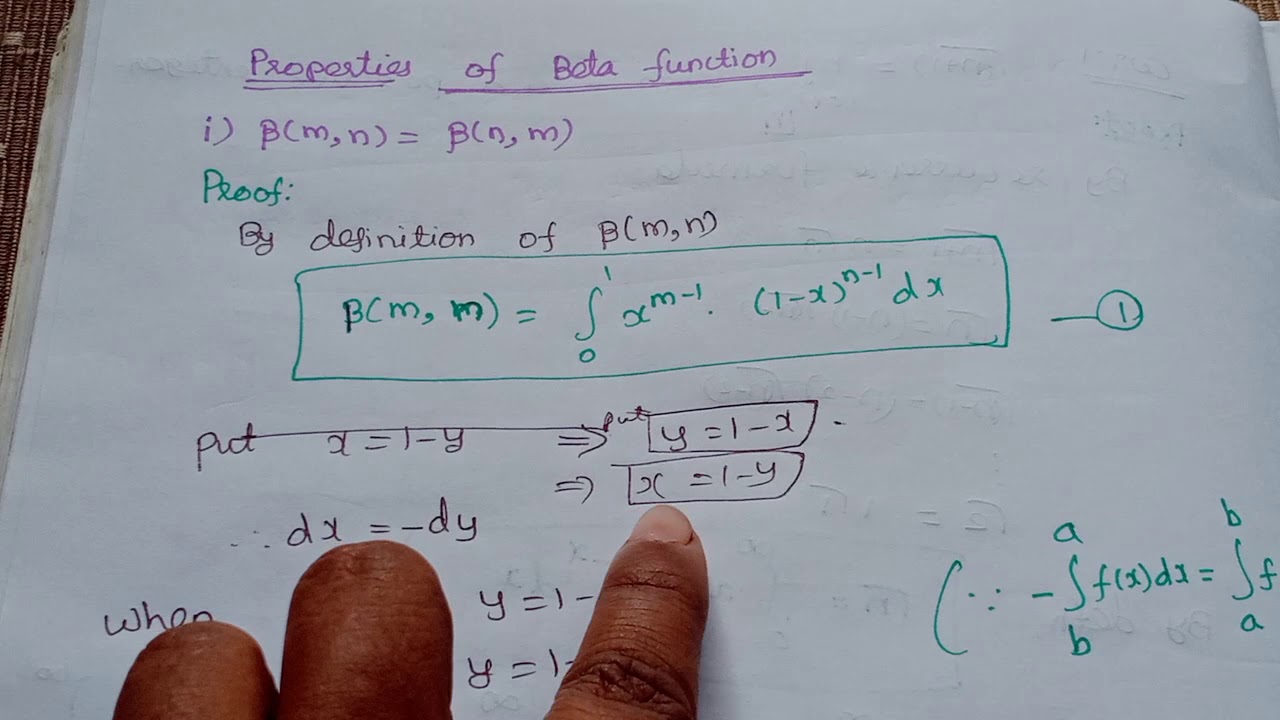 Properties of Beta function
i) β(m,n) = β(n,m)
Proof:
By definition of β(m,n)
β(m, n) = ∫₀¹ x^{m-1}. (1-x)^{n-1} dx —①
put x = 1-y ⇒ put y = 1-x.
⇒ x = 1-y
∴ dx = -dy
When y = 1-
y = 1-
(∵ -∫_b^a f(x)dx = ∫_a^b f